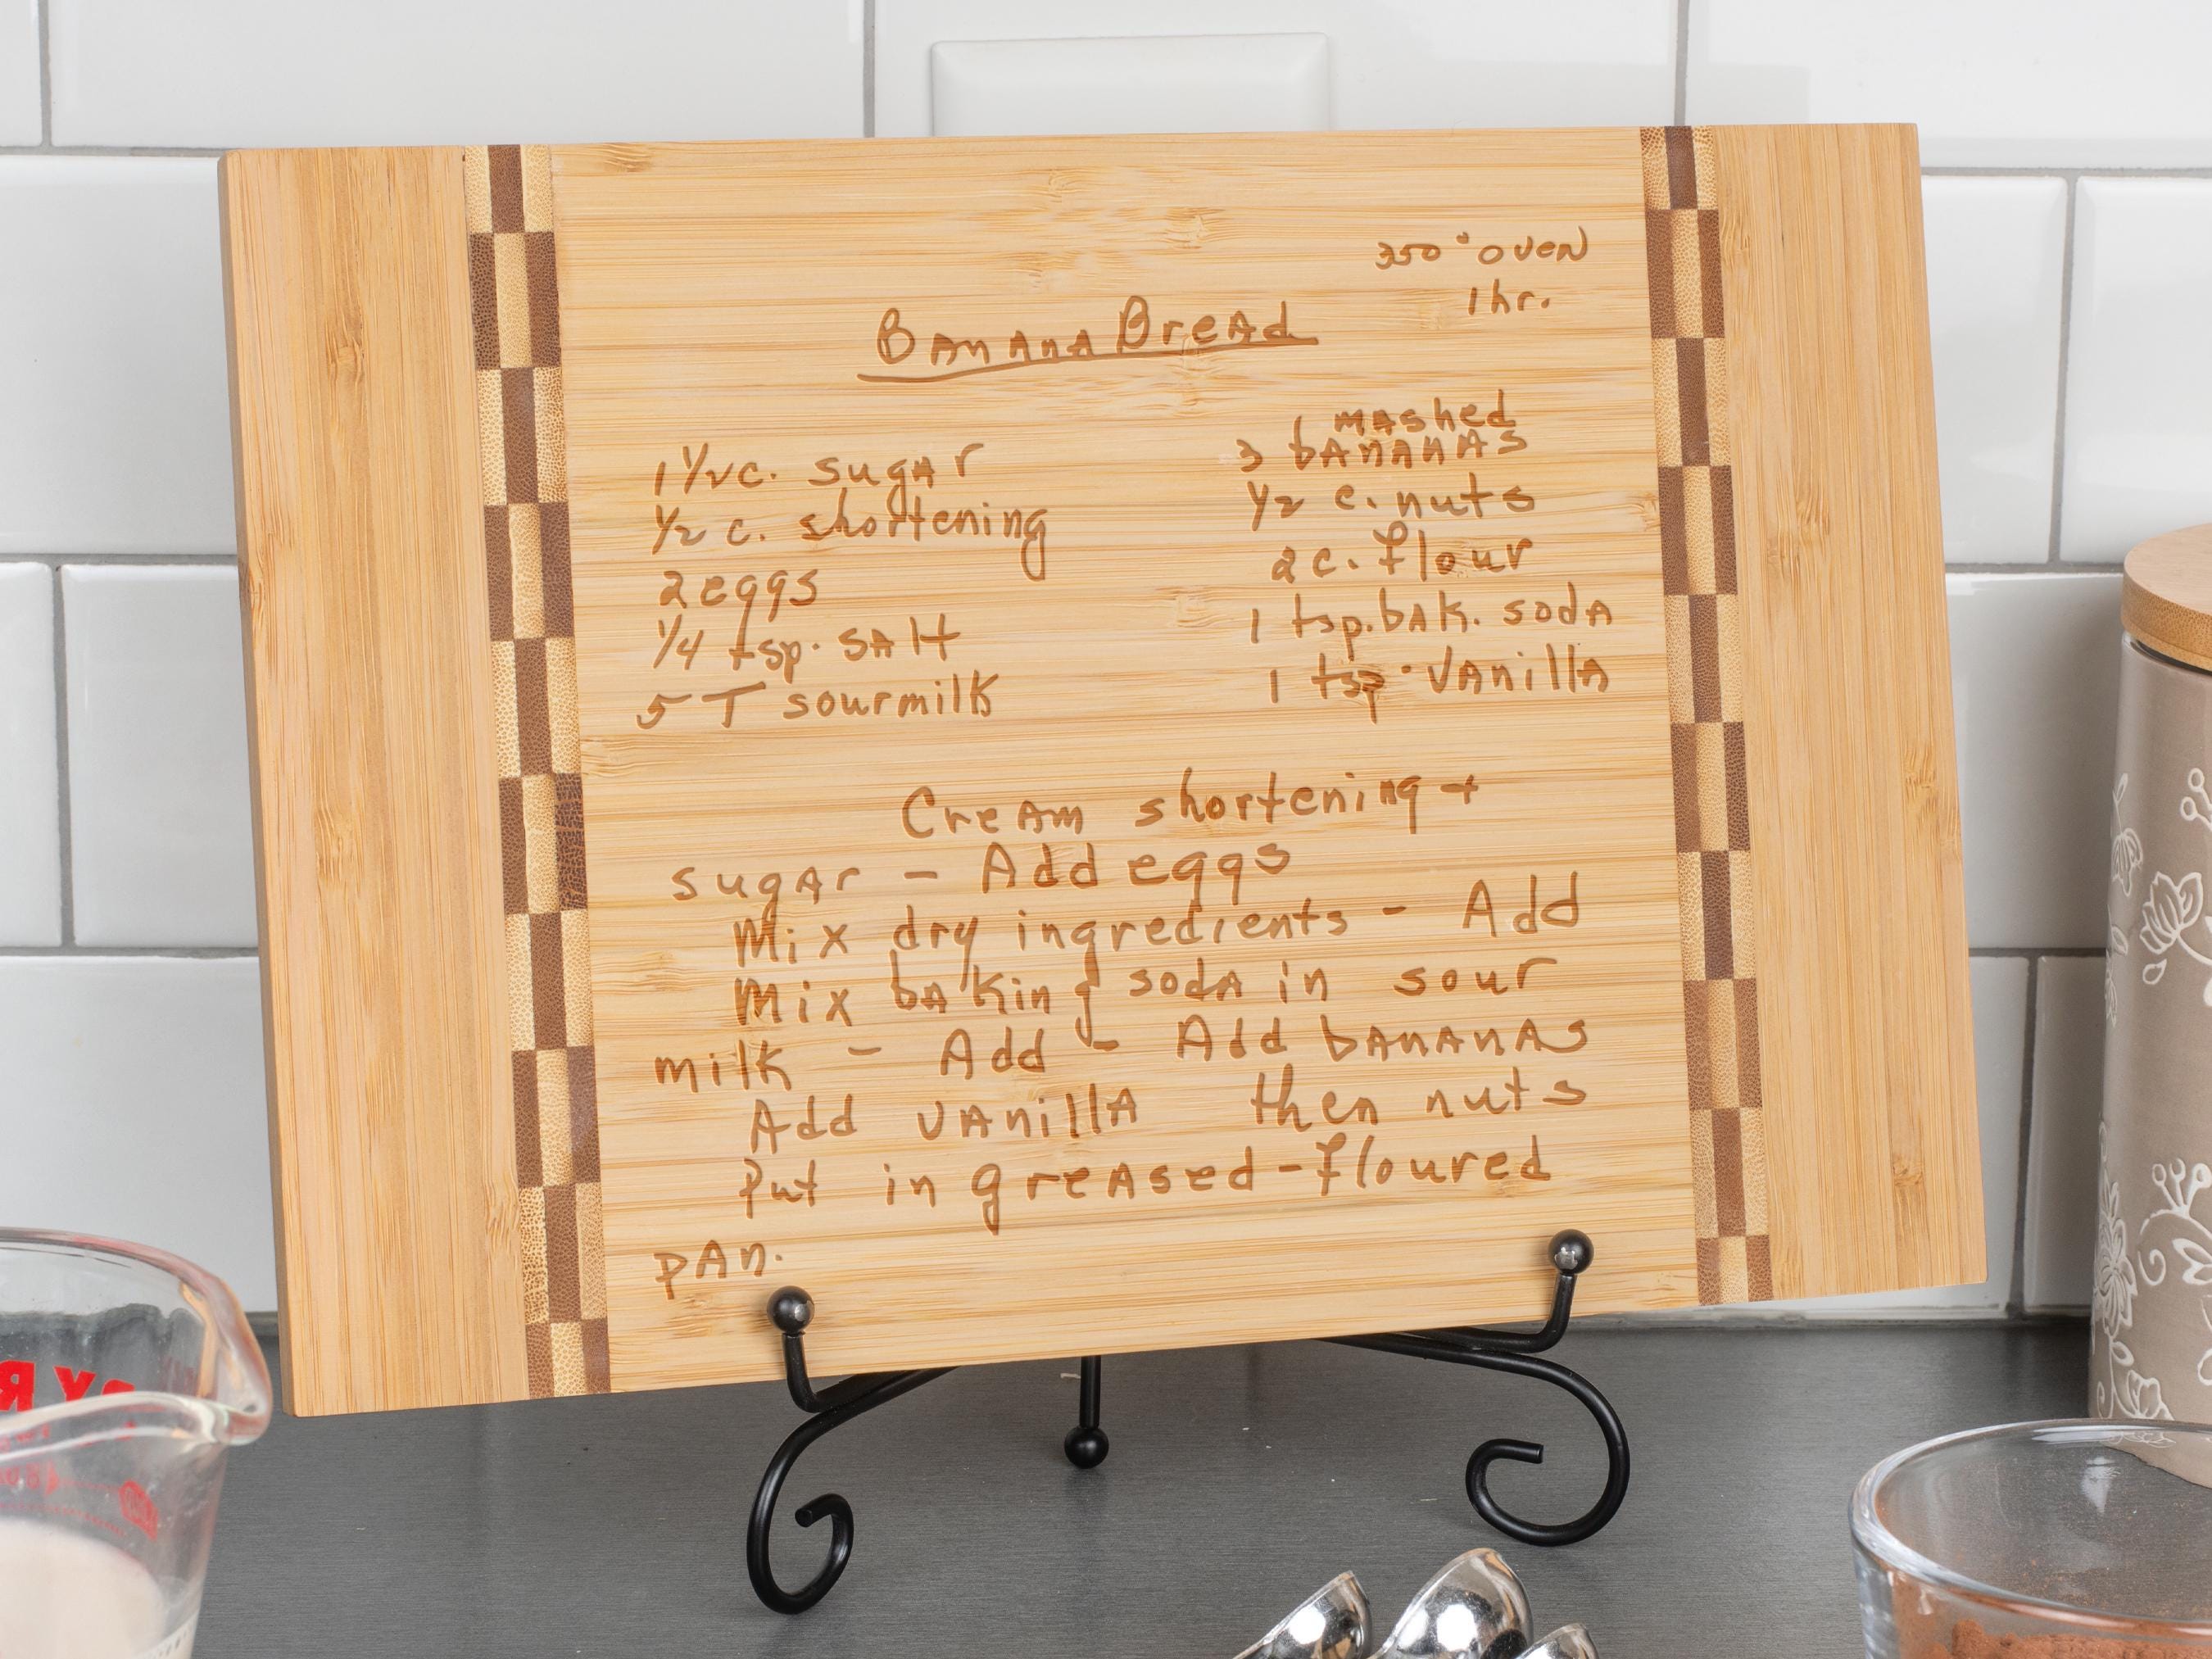 350° oven
1hr.
Banana Bread
1 1/2 c. sugar
1/2 c. shortening
2 eggs
1/4 tsp. salt
5 T sourmilk
mashed
3 bananas
1/2 c. nuts
2 c. flour
1 tsp. bak. soda
1 tsp. vanilla
Cream shortening +
sugar - Add eggs
Mix dry ingredients - Add
Mix baking soda in sour
milk - Add - Add bananas
Add vanilla then nuts
Put in greased-floured
pan.